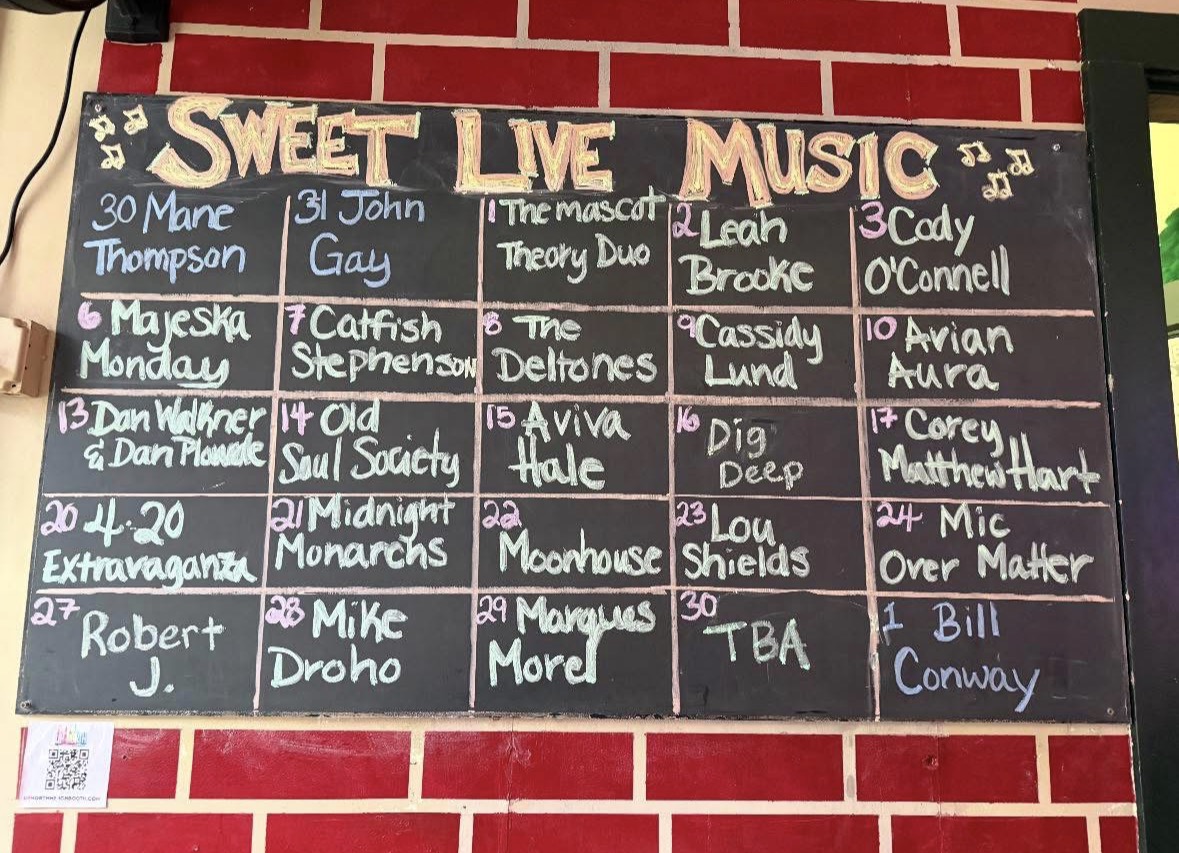 SWEET LIVE MUSIC
30 Mane
Thompson
31 John
Gay
1 The mascot
Theory Duo
2 Leah
Brooke
3 Cody
O'Connell
6 Majeska
Monday
7 Catfish
Stephenson
8 The
Deltones
9 Cassidy
Lund
10 Avian
Aura
13 Dan Walkner
& Dan Plourde
14 Old
Soul Society
15 Aviva
Hale
16 Dig
Deep
17 Corey
Matthew Hart
20 4:20
Extravaganza
21 Midnight
Monarchs
22
Moonhouse
23 Lou
Shields
24 Mic
Over Matter
27 Robert
J.
28 Mike
Droho
29 Marques
Morel
30
TBA
1 Bill
Conway